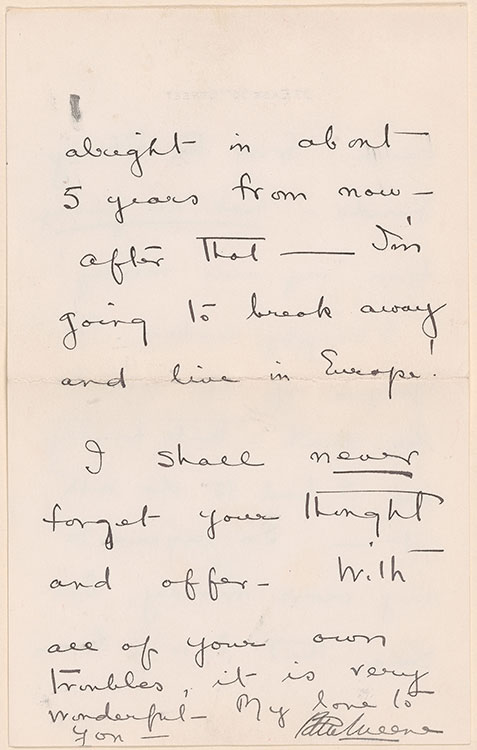 alright in about
5 years from now —
after that — I'm
going to break away
and live in Europe!
I shall never
forget your thought
and offer — With
all of your own
troubles, it is very
wonderful — My love to
you —